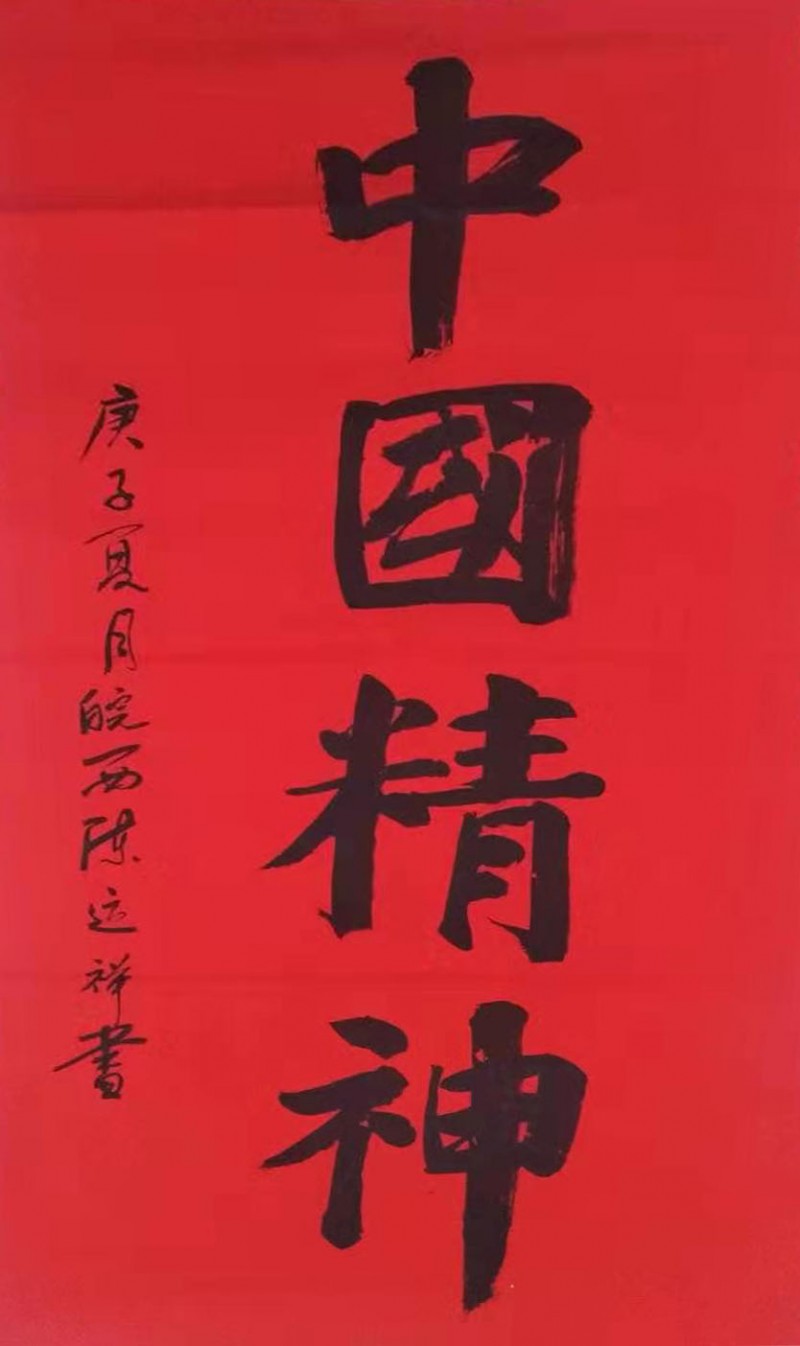 中國精神
庚子夏月皖西陈运祥書